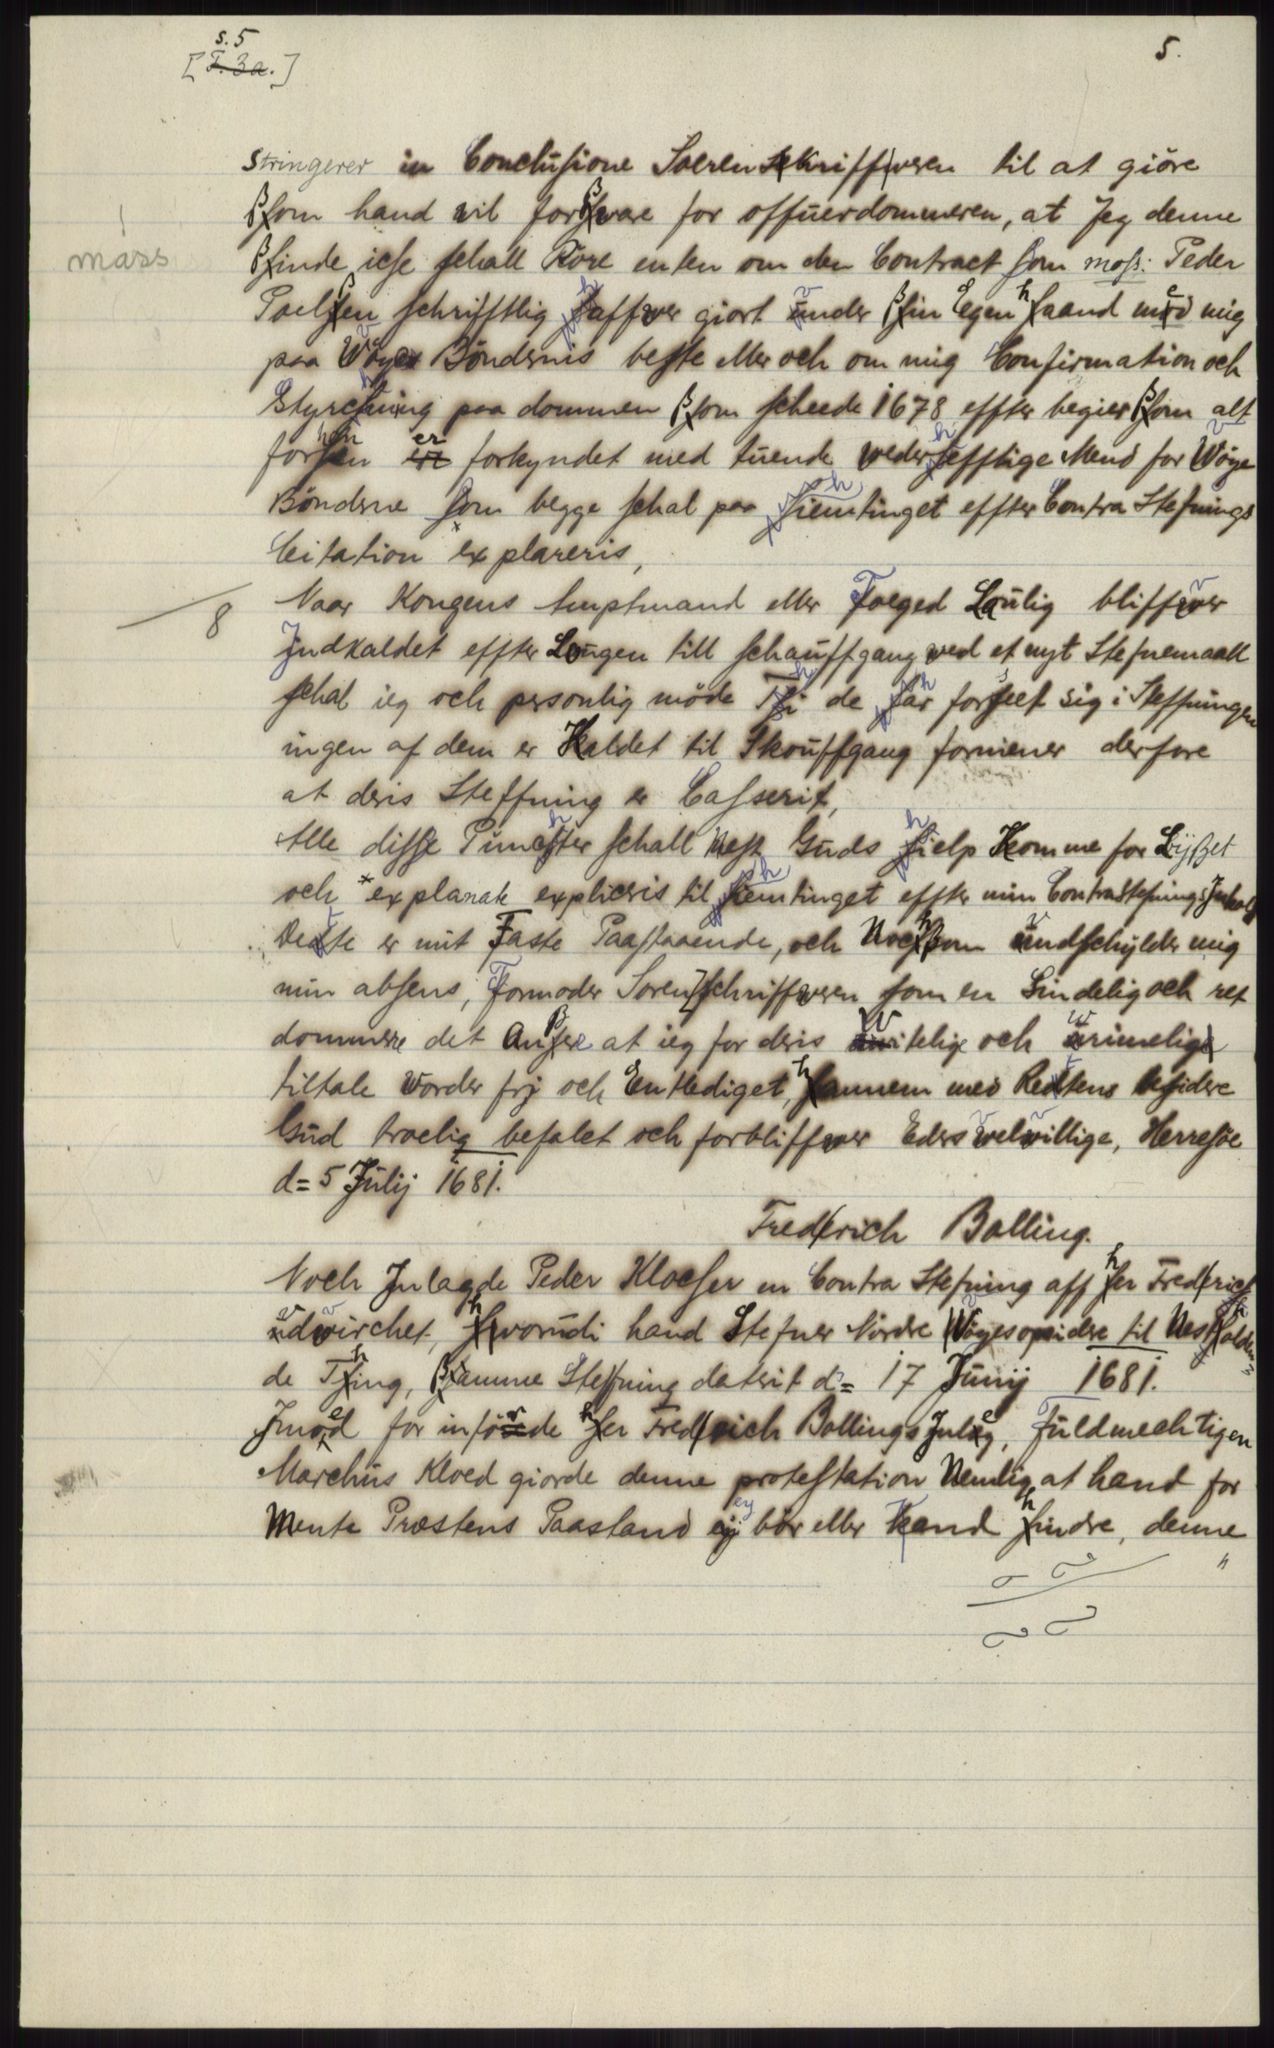 s. 5
[F. 3a.]
5.
stringerer in Conclusione Soeren Skriffveren til at giöre
ßom hand vil forßvare for offuerdommeren, at Jeg denne
mass
ßinde icke schall Röre enten om den Contract som moss: Peder
Poelßen schrifftlig haffver giort under ßin Egen haand med mig
paa Vöge Böndernis beste eller och om mig Confirmation och
Styrchning paa dommen ßom scheede 1678 effter begier ßom alt
forhen er forkyndet med tuende vederhefftige Mend for Vöge
Bönderne som begge schal paa hiemtinget effter Contra Stefnings
Citation explareris,
8
Naar Kongens Amptmand eller Foeged Laulig bliffver
Jndkaldet effter Lougen till schauffgang ved et nyt Stefnemaall
schal ieg och personlig möde Thi de har forseet sig i Steffningen
ingen af dem er Kaldet til Skouffgang formener derfore
at deris Steffning er Casserit,
Alle disse Puncter schall nest Guds hielp Komme for Lyßet
och explanate expliceris til hiemtinget effter min Contrastefnings Jnhold
Dette er mit Faste Paastaaende, och Nochßom undschylder mig
min absens, Formoder Sorenschriffveren som en Sindelig och ret
dommere det Anßer at ieg for deris Witelige och urimelige
tiltale worder frj och Entlediget, hannem med Rettens besidere
Gud troelig befalet och forbliffver Eders velvillige, Herresöe
d= 5 Julij 1681.
Frederich Bolling.
Noch Jnlagde Peder Klocker en Contra Stefning aff her Frederich
udvirchet, hvorudi hand Stefner Nordre Vöges opsidere til Nes holden
de Thing, ßamme Stefning daterit d= 17 Junij 1681.
Jmod for införde her Frederich Bollings Jnleg, Fuldmechtigen
Marchus Kloed giorde denne protestation Nemlig at hand for
Mente Præstens Paastand ey bör eller Kand hindre, denne
"